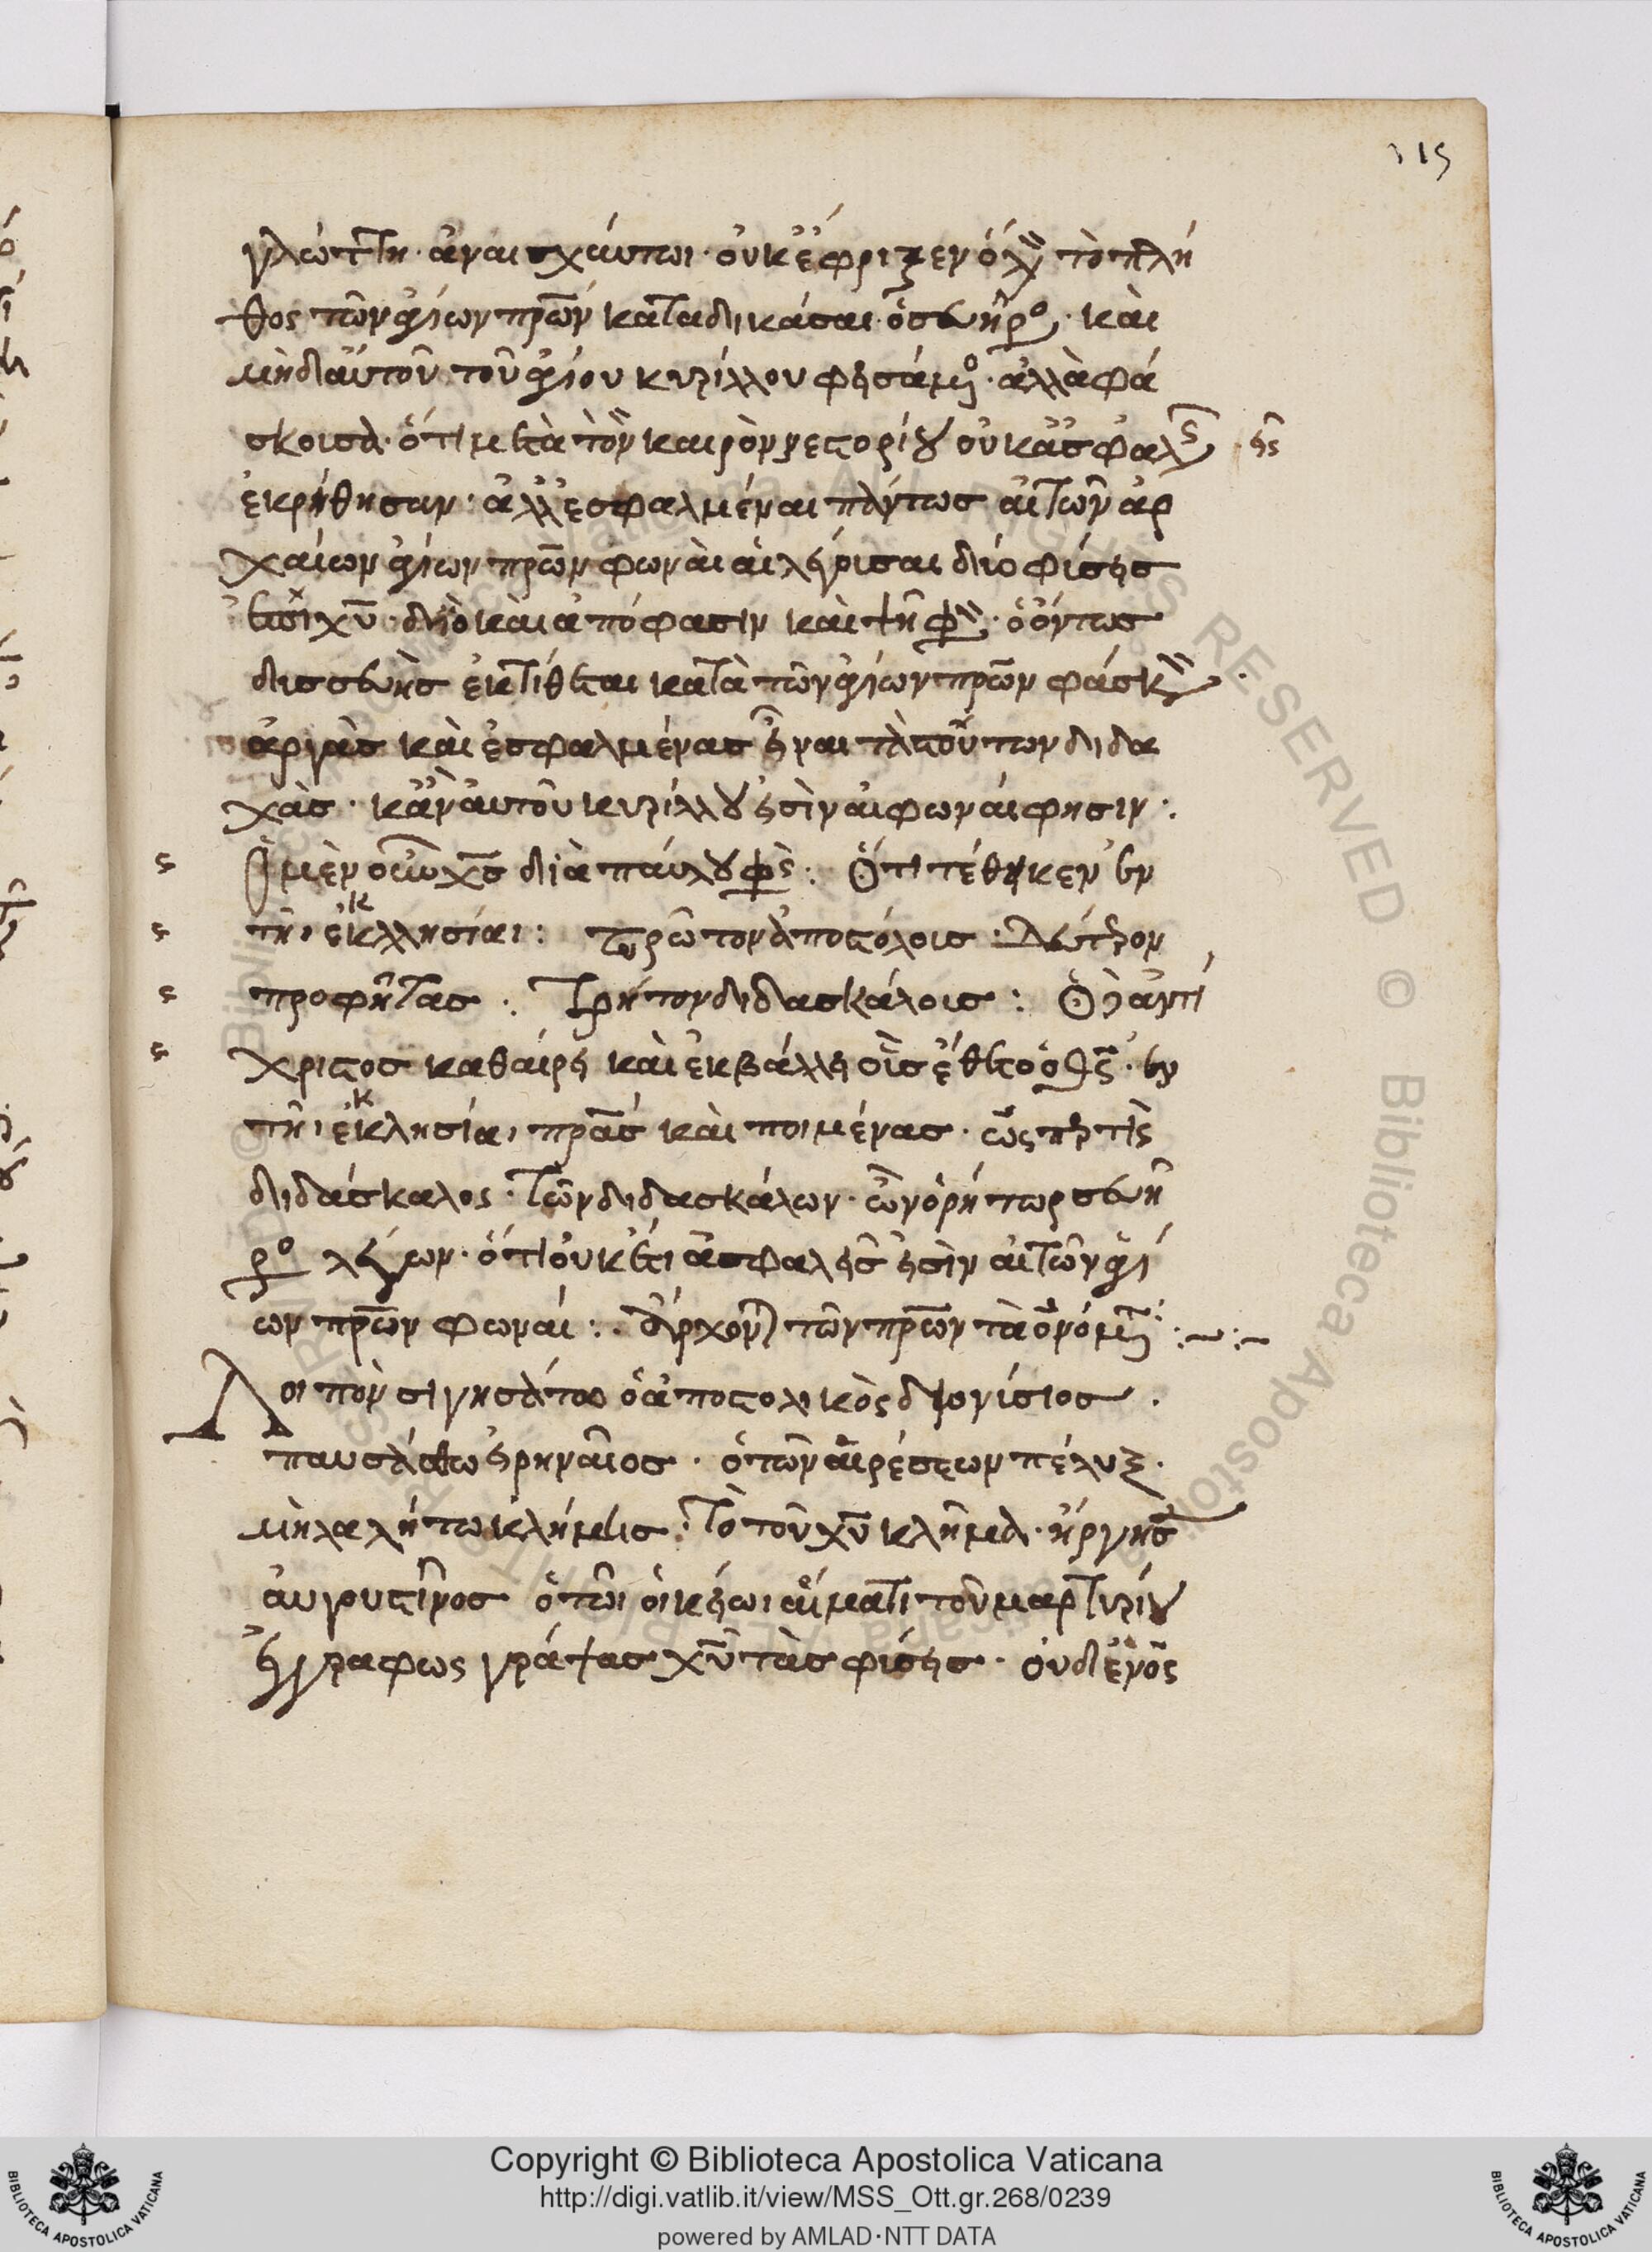 115
γλώττη· ἀναισχύντωι· οὐκ ἔφριξεν ὅλν τὸ πλῆ
θος τῶν ἁγίων πρῶν καταδικάσαι ὁ σευῆρο· καὶ
μηδ αὐτοῦ τοῦ ἁγίου κυρίλλου φεισάμο· ἀλλὰ φά
σκοισα· ὅτι μετὰ τὸν καιρὸν νεστορίου οὐκ ἀσφαλ εῖς
ἐκρήθησαν· ἀλλ ἐσφαλμέναι πάντως αἱ τῶν ἀρ
χαίων ἁγίων πρῶν φωναὶ αἱ λέγουσαι δύο φύσεις
ἐπὶ χῦ· διὸ καὶ ἀπόφασιν καὶ ψῆφν· ὁ ὄντως
δισσευὴς ἐκτίθεται κατὰ τῶν ἁγίων πρῶν φάσκων·
ἀργὰς καὶ ἐσφαλμένας εἶναι τὰς τούτων διδα
χὰς· κἂν αὐτοῦ κυρίλλου εἰσὶν αἱ φωναί φησιν·
Ὁ μὲν οὖν χς διὰ παύλου φς: Ὅτι τέθηκεν ἐν
τῆι ἐκκλησίαι: πρῶτον ἀποστόλοις· δεύτερον
προφήτας: Τρήτον διδασκάλοις: Ὁ δ ἀντί
χριστος καθαίρει καὶ ἐκβάλλει οἷς ἔθετο ὁ θς· ἐν
τῆι ἐκκλησίαι πρας καὶ ποιμένας· ὥσπερ τις
διδάσκαλος· τῶν διδασκάλων· ὢν ὁ ρήτωρ σευῆ
ρο λέγων· ὅτι οὐκέτι ἀσφαλεῖς εἰσὶν αἱ τῶν ἁγί
ων πρῶν φωναί:
τῶν πρῶν τὰ ὀνόμ
Λοιπὸν σιγησάτω ὁ ἀποστολικὸς διονύσιος·
παυσάσθω εἰρηναῖος· ὁ τῶν αἱρέσεων πέλυξ·
μὴ λαλήτω κλήμεις· τὸ τοῦ χῦ κλῆμα· ἠργης
αὐγουστῖνος ὁ τῶι οἰκείωι αἵματι τοῦ μαρτυρίου
ἐγγράφως γράψας χῦ τὰς φύσεις· οὐδ ἑνὸς
Copyright © Biblioteca Apostolica Vaticana
http://digi.vatlib.it/view/MSS_Ott.gr.268/0239
powered by AMLAD·NTT DATA